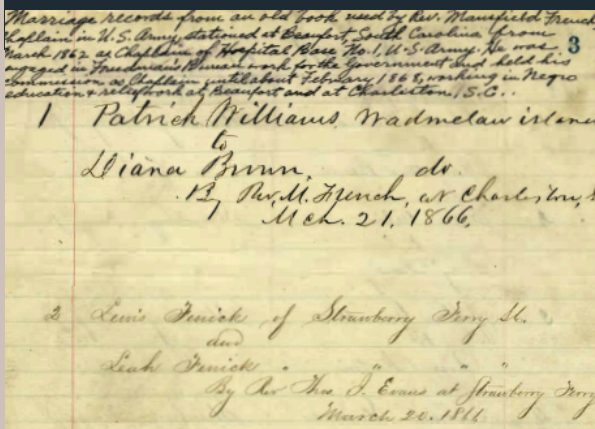 Marriage records from an old book used by Rev. Mansfield French,
Chaplain in U.S. Army, stationed at Beaufort, South Carolina from
March 1862 as Chaplain of Hospital Base No. 1, U.S. Army. He was
engaged in Freedman's Bureau work for the Government and held his
commission as Chaplain until about February 1868, working in Negro
education & relief work at Beaufort and at Charleston, S.C..
3
1 Patrick Williams, Wadmelaw islan
to
Diana Brown, do.
By Rev. M. French, at Charleston,
Mch. 21, 1866.
2 Lewis Fenick of Strawberry Ferry
and
Leah Fenick " " " "
By Rev Thos. J. Evans at Strawberry Ferry
March 20. 1866